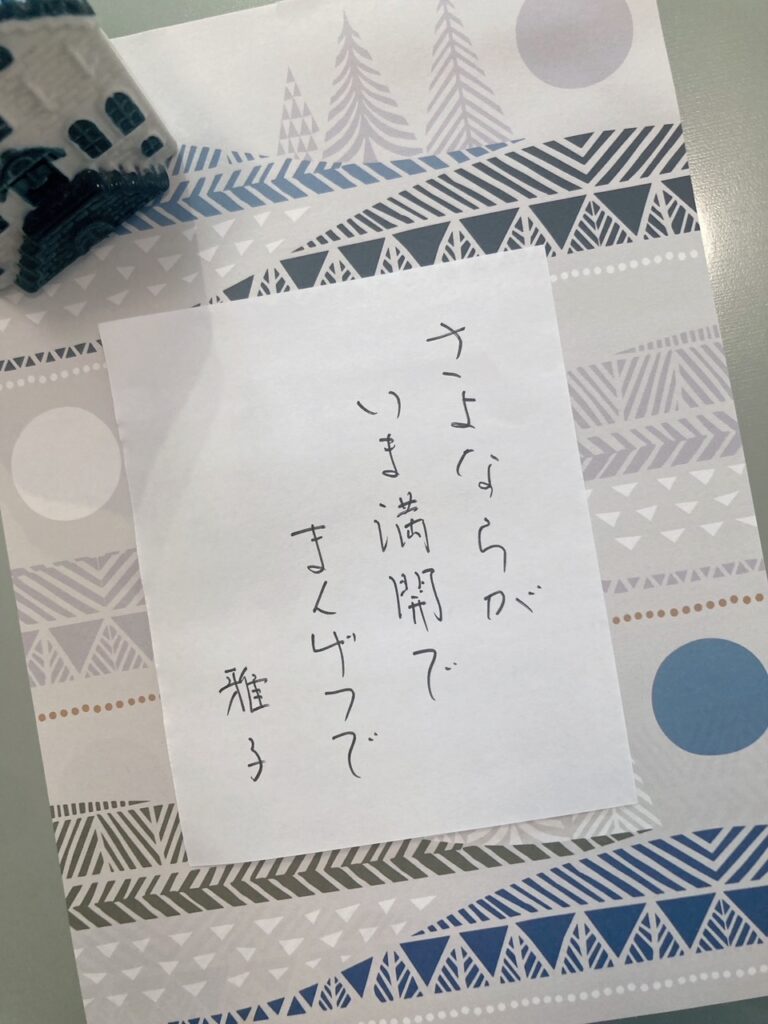 さよならが
いま満開で
まんげつで
雅子